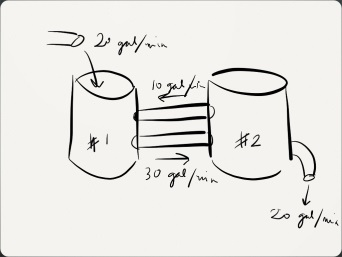 20 gal/min
10 gal/min
#1
#2
30 gal/min
20 gal/min